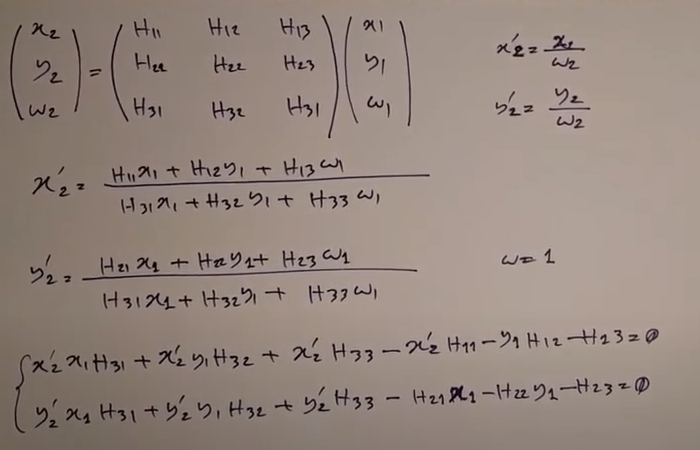 (x₂ y₂ ω₂) = (H₁₁ H₁₂ H₁₃ H₂₂ H₂₂ H₂₃ H₃₁ H₃₂ H₃₁) (x₁ y₁ ω₁)
x′₂ = x₂/ω₂
y′₂ = y₂/ω₂
x′₂ = (H₁₁x₁ + H₁₂y₁ + H₁₃ω₁)/(H₃₁x₁ + H₃₂y₁ + H₃₃ω₁)
y′₂ = (H₂₁x₁ + H₂₂y₁ + H₂₃ω₁)/(H₃₁x₁ + H₃₂y₁ + H₃₃ω₁)
ω = 1
{ x′₂x₁H₃₁ + x′₂y₁H₃₂ + x′₂H₃₃ − x′₂H₁₁ − y₁H₁₂ − H₂₃ = 0
y′₂x₁H₃₁ + y′₂y₁H₃₂ + y′₂H₃₃ − H₂₁x₁ − H₂₂y₁ − H₂₃ = 0